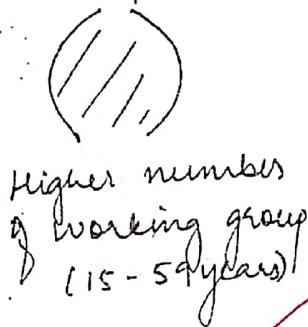 Higher number
of working group
(15 - 59 years)